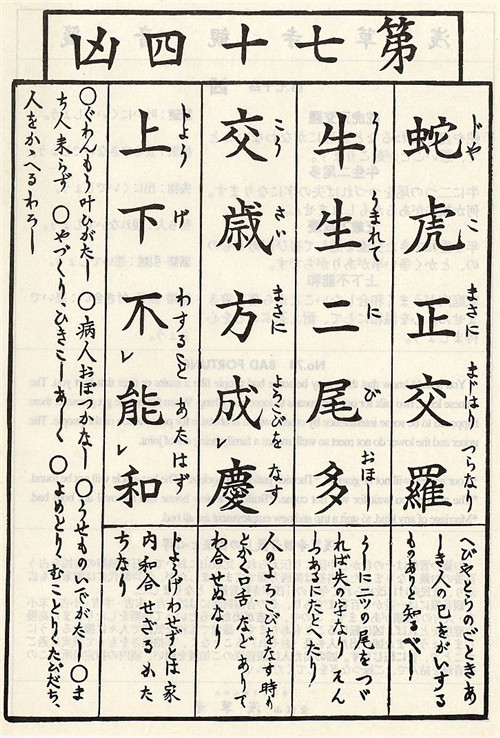 第七十四凶
蛇虎正交羅
じやこ まさに まじはり つらなり
へびやとらのごときあ
しき人の已をがいする
ものありと知るべし
牛生二尾多
うしうまれて に び おほし
うしに二ッ尾をつゞ
れば失の字なり そん
しつあるにたとへたり
交歳方成レ慶
こう さい まさに よろこびを なす
人のよろこびをなす時り
とかく口舌などありて
わ合せぬなり
上下不レ能レ和
じよう げ わすること あたはず
じようげわせずとは家
内和合せざるかた
ちなり
〇ぐわんもう叶ひがたし 〇病人おぼつかなし 〇うせものいでがたし 〇ま
ち人来らず 〇やづくり、ひきこしあしく 〇よめとり、むことり、たびだち、
人をかゝへるわろし